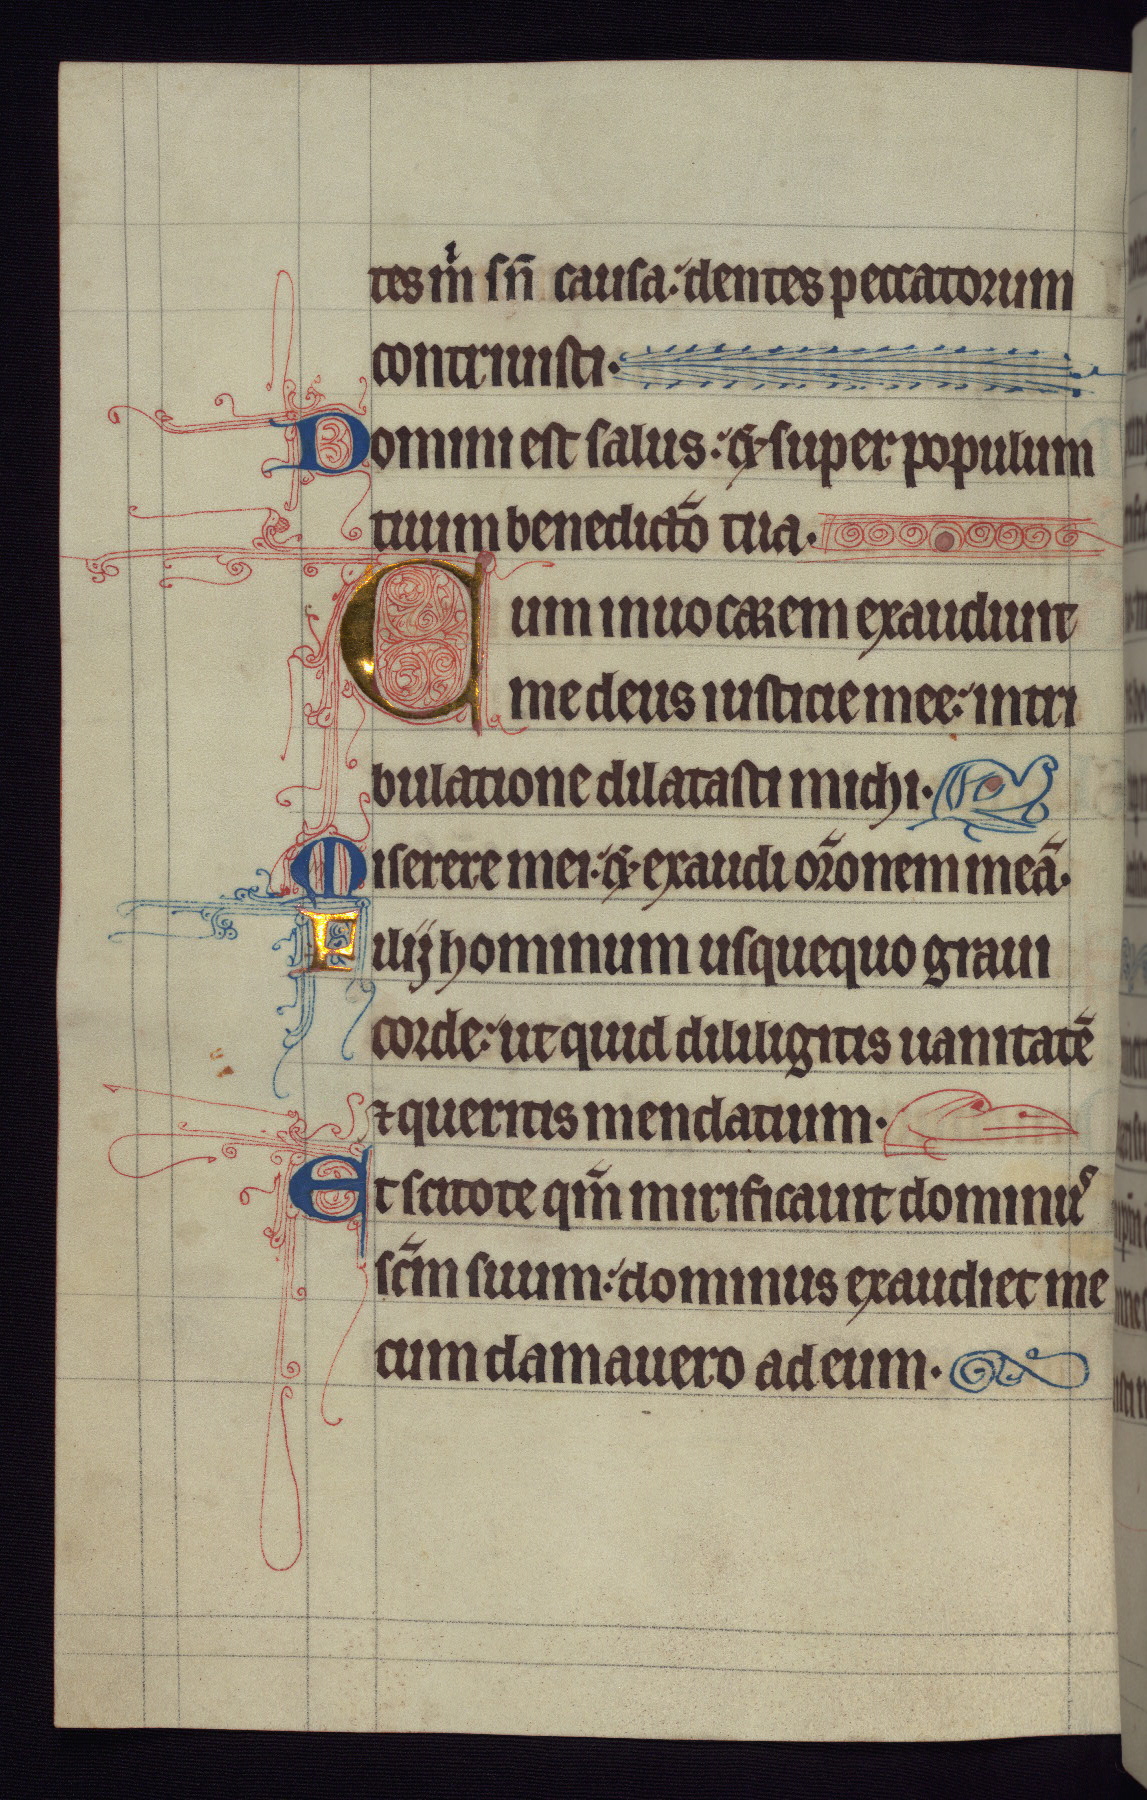 tes m̉ sn̄ causa: dentes peccatorum
contriuisti.
Domini est salus: & super populum
tuum benedictō tua.
Cum inuocarem exaudiuit
me deus iusticie mee: in tri
bulatione dilatasti michi.
Miserere mei: & exaudi or̄onem meā.
Filij hominum usquequo graui
corde: ut quid dililigitis uanitatē
⁊ queritis mendatium.
Et scitote qm̄ mirificauit dominuˢ
sc̄m suum: dominus exaudiet me
cum clamauero ad eum.